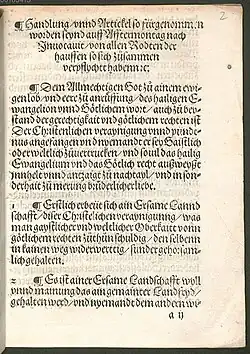 2
¶ Handlung vnnd Artickel so fürgenommen
worden seynd auff Afftermontag nach
Jnuocauit / von allen Rodten der
hauffen so sich zusammen
verpflicht habenn ꝛc
¶ Dem Allmechtigen Got zů ainem ewi-
gen lob / vnd eer zů anrüffung / des hailigen E-
wangelion vnnd Götlichem wort / auch zů bey-
stand der gerechtigkait vnd götlichem rechten ist
Der Christenlichen verainigung vnnd pünd-
nus angefangen vnd nyemandt er sey Gaistlich
oder weltlich zů verrucken / vnd souil das hailig
Ewangelium vnnd das Götlich recht außweyst
ynnhelt vnnd antzaigt zů nachtayl / vnd in son-
derhait zů merung brüderlicher liebe.
1 ¶ Erstlich erbeüt sich ain Ersame Lannd
schafft / diser Christelichen veraynigung / was
man gaystlicher vnd weltlicher Oberkait von
götlichem rechten zů thůn schuldig / den selben n
in kainen weg widerwertig / sunder gehorsam-
lich gehalten.
2 ¶ Es ist ainer Ersame Landschafft wyll
vnnd mainung das ain gemainer Landsfryd
gehalten werd / vnd nyemandt dem andern wi-
a ij